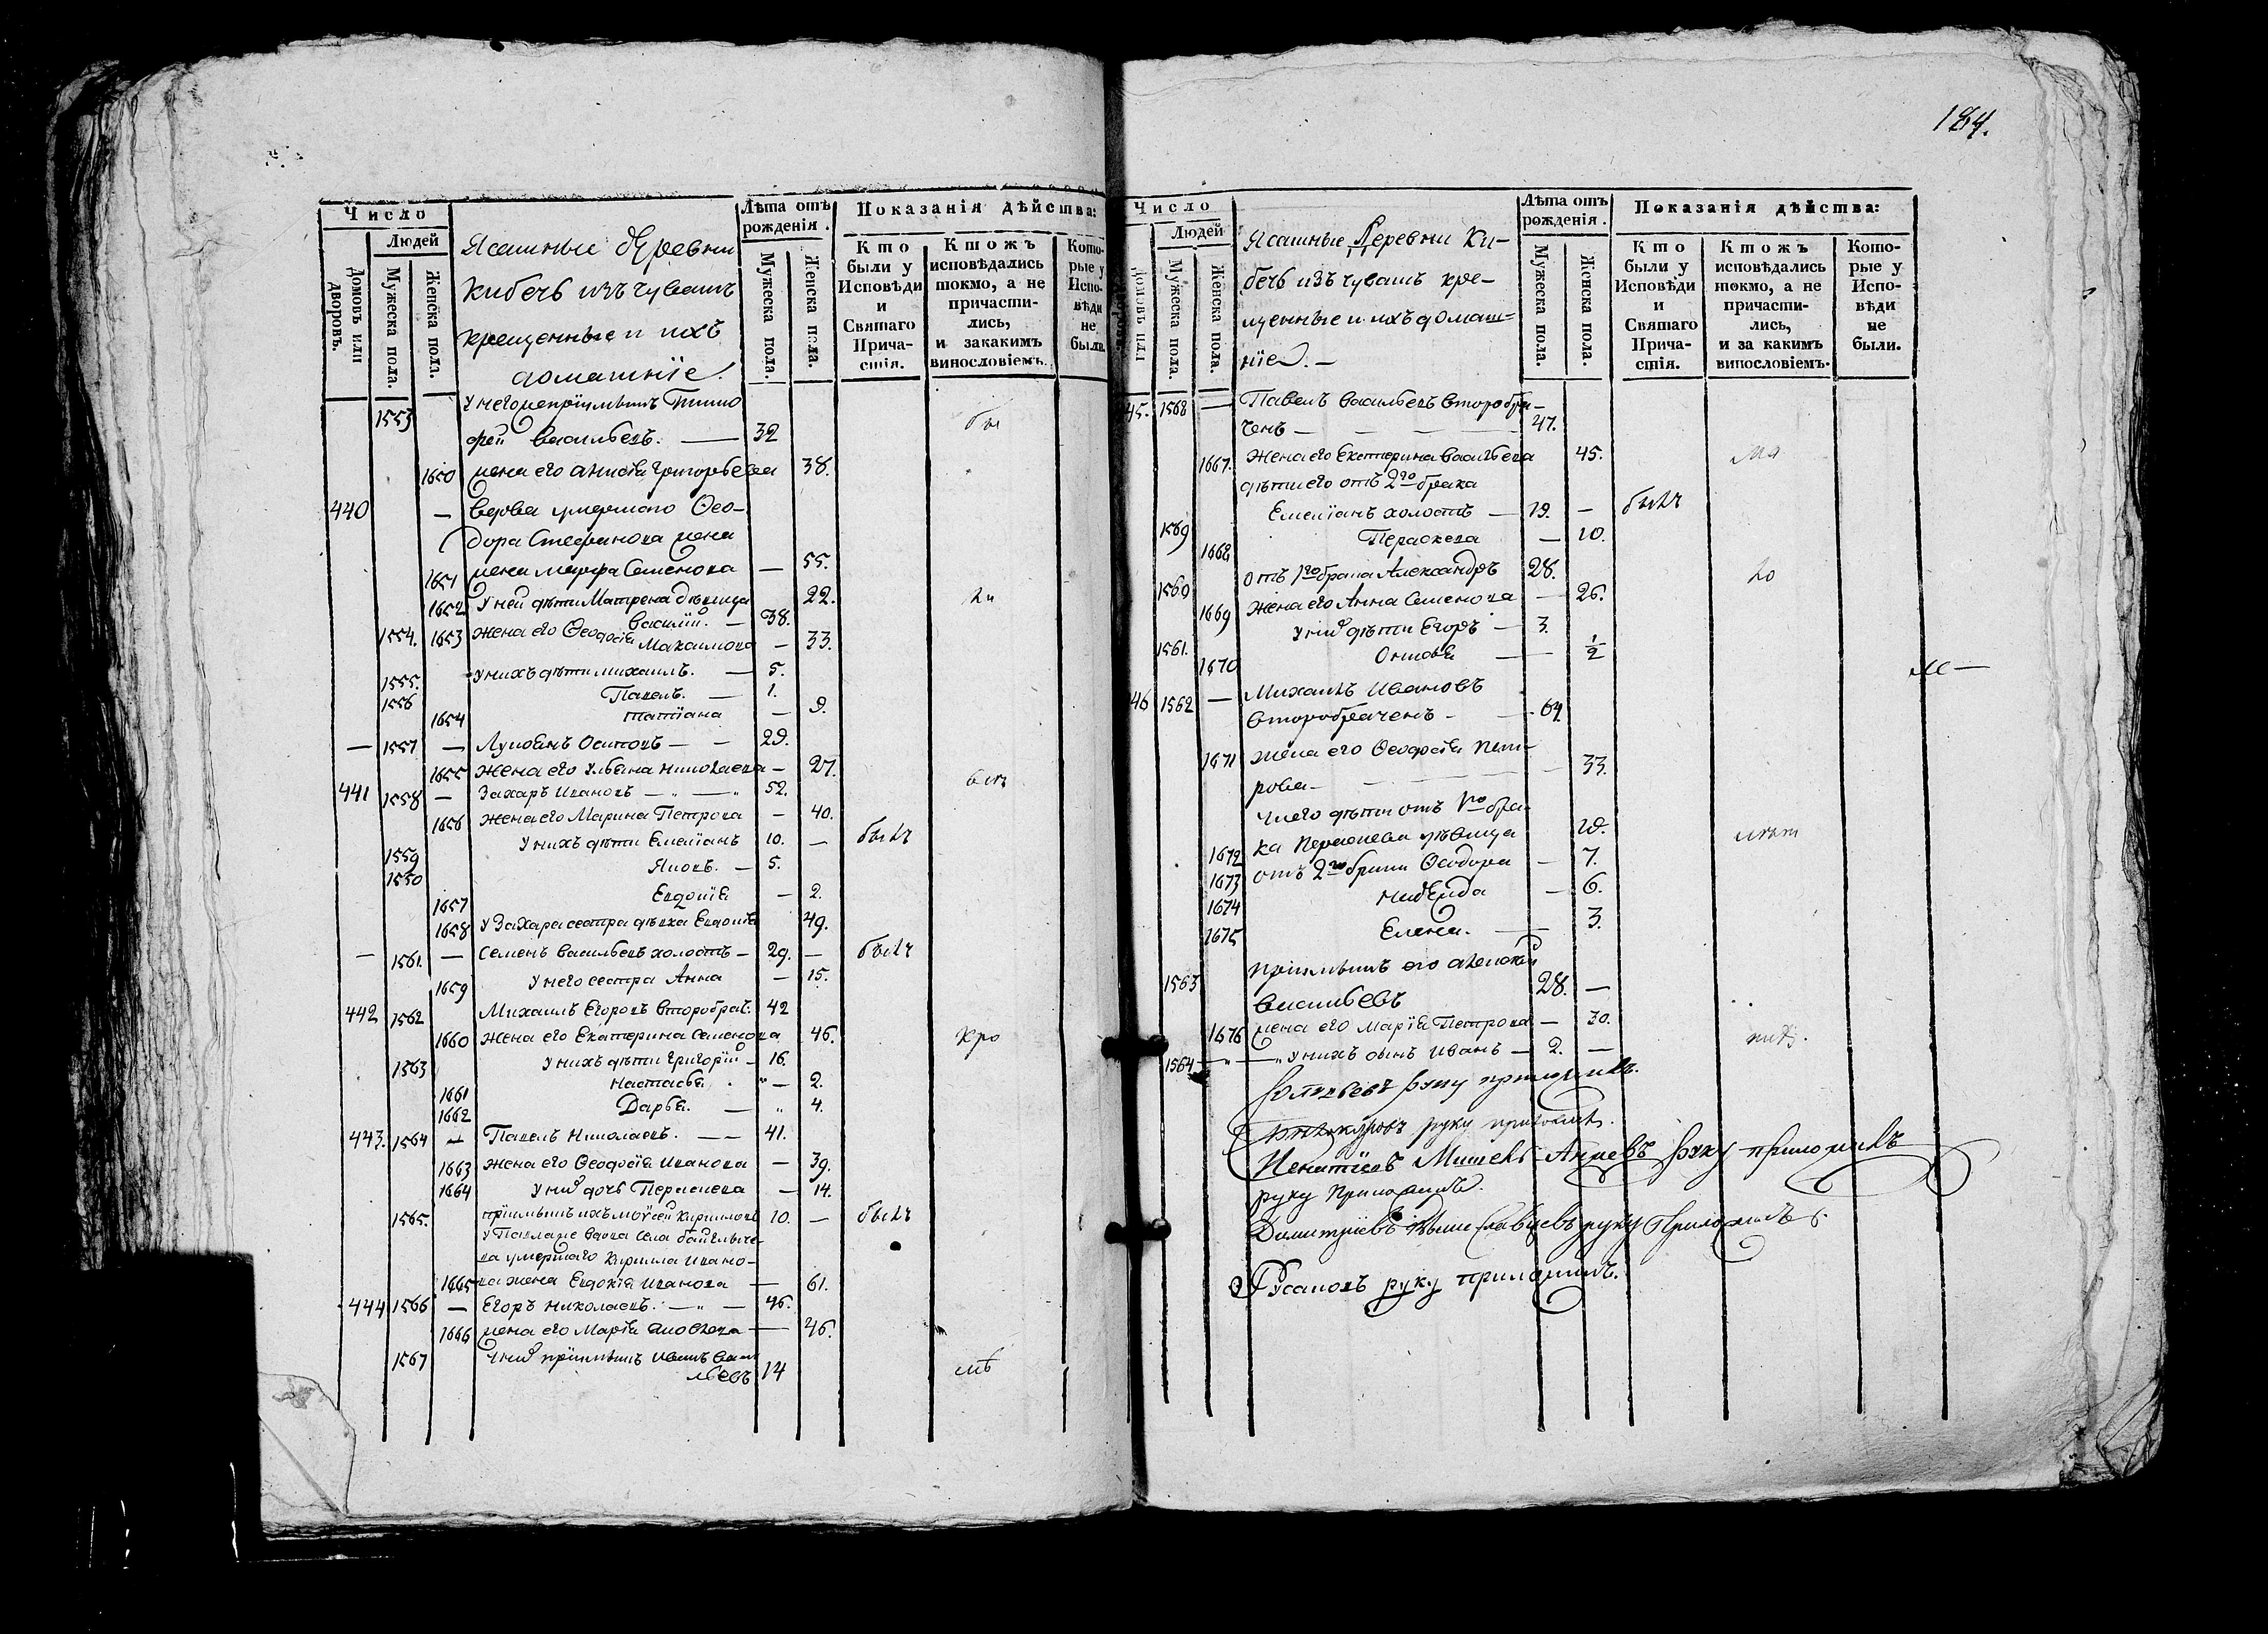 184.
Число
Лѣта отъ рожденія.
Показанія дѣйства:
Людей
Домовъ или дворовъ.
Мужеска пола.
Женска пола.
Ясашные деревни
Кибечь изъ чувашъ
крещенные и ихъ
домашніе.
Мужеска пола.
Женска пола.
Кто были у Исповѣди и Святаго Причастія.
Ктожъ исповѣдались токмо, а не причастились, и закакимъ винословіемъ.
Которые у Исповѣди не были.
1553 У него непріимышъ Тимо
фей Васильевъ. — 32 бы
1650 жена его Григорьева 38.
440 — вдова умершаго Ѳео-
дора Степанова жена
1651 жена Марфа Семенова — 55.
1652 У ней дѣти Матрена дѣвица 22. ли
1554. Василій. — 38.
1653 жена его Ѳеодосія Максимова — 33.
1555. У нихъ дѣти Михаилъ. — 5.
1556 Павелъ. — 1.
1654 Татіана — 9.
— 1557 — Лукіянъ Осиповъ — — 29.
1655 жена его Ульяна Николаева — 27.
441 1558 — Захаръ Ивановъ — „ — „ 52.
1656 жена его Марина Петрова — 40.
1559 У нихъ дѣти Емеліанъ 10. — былъ
1550 Яковъ. — 5.
1657 Евдокія — 2.
1658 У Захара сестра дѣвка Евдокія 49.
— 1561. — Семенъ Васильевъ холостъ — 29. — былъ
1659 У него сестра Анна — 15.
442 1562 Михаилъ Егоровъ второбрач: 42
1660 жена его Екатерина Семенова 46. кро
1563 У нихъ дѣти Григорій — 16.
1661 Настасья „ — 2.
1662 Дарья. — „ 4.
443. 1564 — Павелъ Николаевъ. — — 41.
1663 жена его Ѳеодосія Иванова — 39.
1664 У нихъ дочь Параскева — 14.
1565. пріимышъ ихъ Моѵсей Кирилловъ 10. — былъ
У Павла вдова села
ва умершаго Кирилла Ивано-
1665 ва жена Евдокія Иванова — 61.
444 1566 — Егоръ Николаевъ. — „ — 46.
1666 жена его Марія Яковлева — 46.
1567 У нихъ пріимышъ Иванъ Васи
льевъ 14 мѣ
Число
Лѣта отъ рожденія.
Показанія дѣйства:
Людей
Мужеска пола.
Женска пола.
Ясашные Деревни Ки-
бечь изъ чувашъ кре-
щенные и ихъ домаш-
ніе. —
Мужеска пола.
Женска пола.
Кто были у Исповѣди и Святаго Причастія.
Ктожъ исповѣдались токмо, а не причастились, и за какимъ винословіемъ.
Которые у Исповѣди не были.
45. 1568 — Павелъ Васильевъ второбра-
ченъ — — — — 47.
1667. Жена его Екатерина Васильева 45. ма
дѣти его отъ 2го брака
1569 Емеліанъ холостъ — 19. — былъ
1668 Параскева — 10.
1560 отъ 1го брака Александръ 28. ло
1669 жена его Анна Семенова — 26.
1561. У нихъ дѣти Егоръ — 3.
1670 — 1/2
46 1562 — Михаилъ Ивановъ
второбраченъ — — 64.
1671 жена его Ѳеодосія Пет-
рова — 33.
У него дѣти отъ 1го бра-
1672 ка Параскева дѣвица 19.
1673 отъ 2го брака Ѳеодора — 7.
1674 — 6.
1675 Елена. — 3.
1563 пріимышъ его Алексѣй
Васильевъ 28. —
1676 жена его Марія Петрова — 30.
1564 — „ — „ У нихъ сынъ Иванъ — 2. —
руку приложилъ.
руку приложилъ.
руку приложилъ
руку Приложилъ.
Димитріевъ руку Приложилъ
Русановъ руку приложилъ.